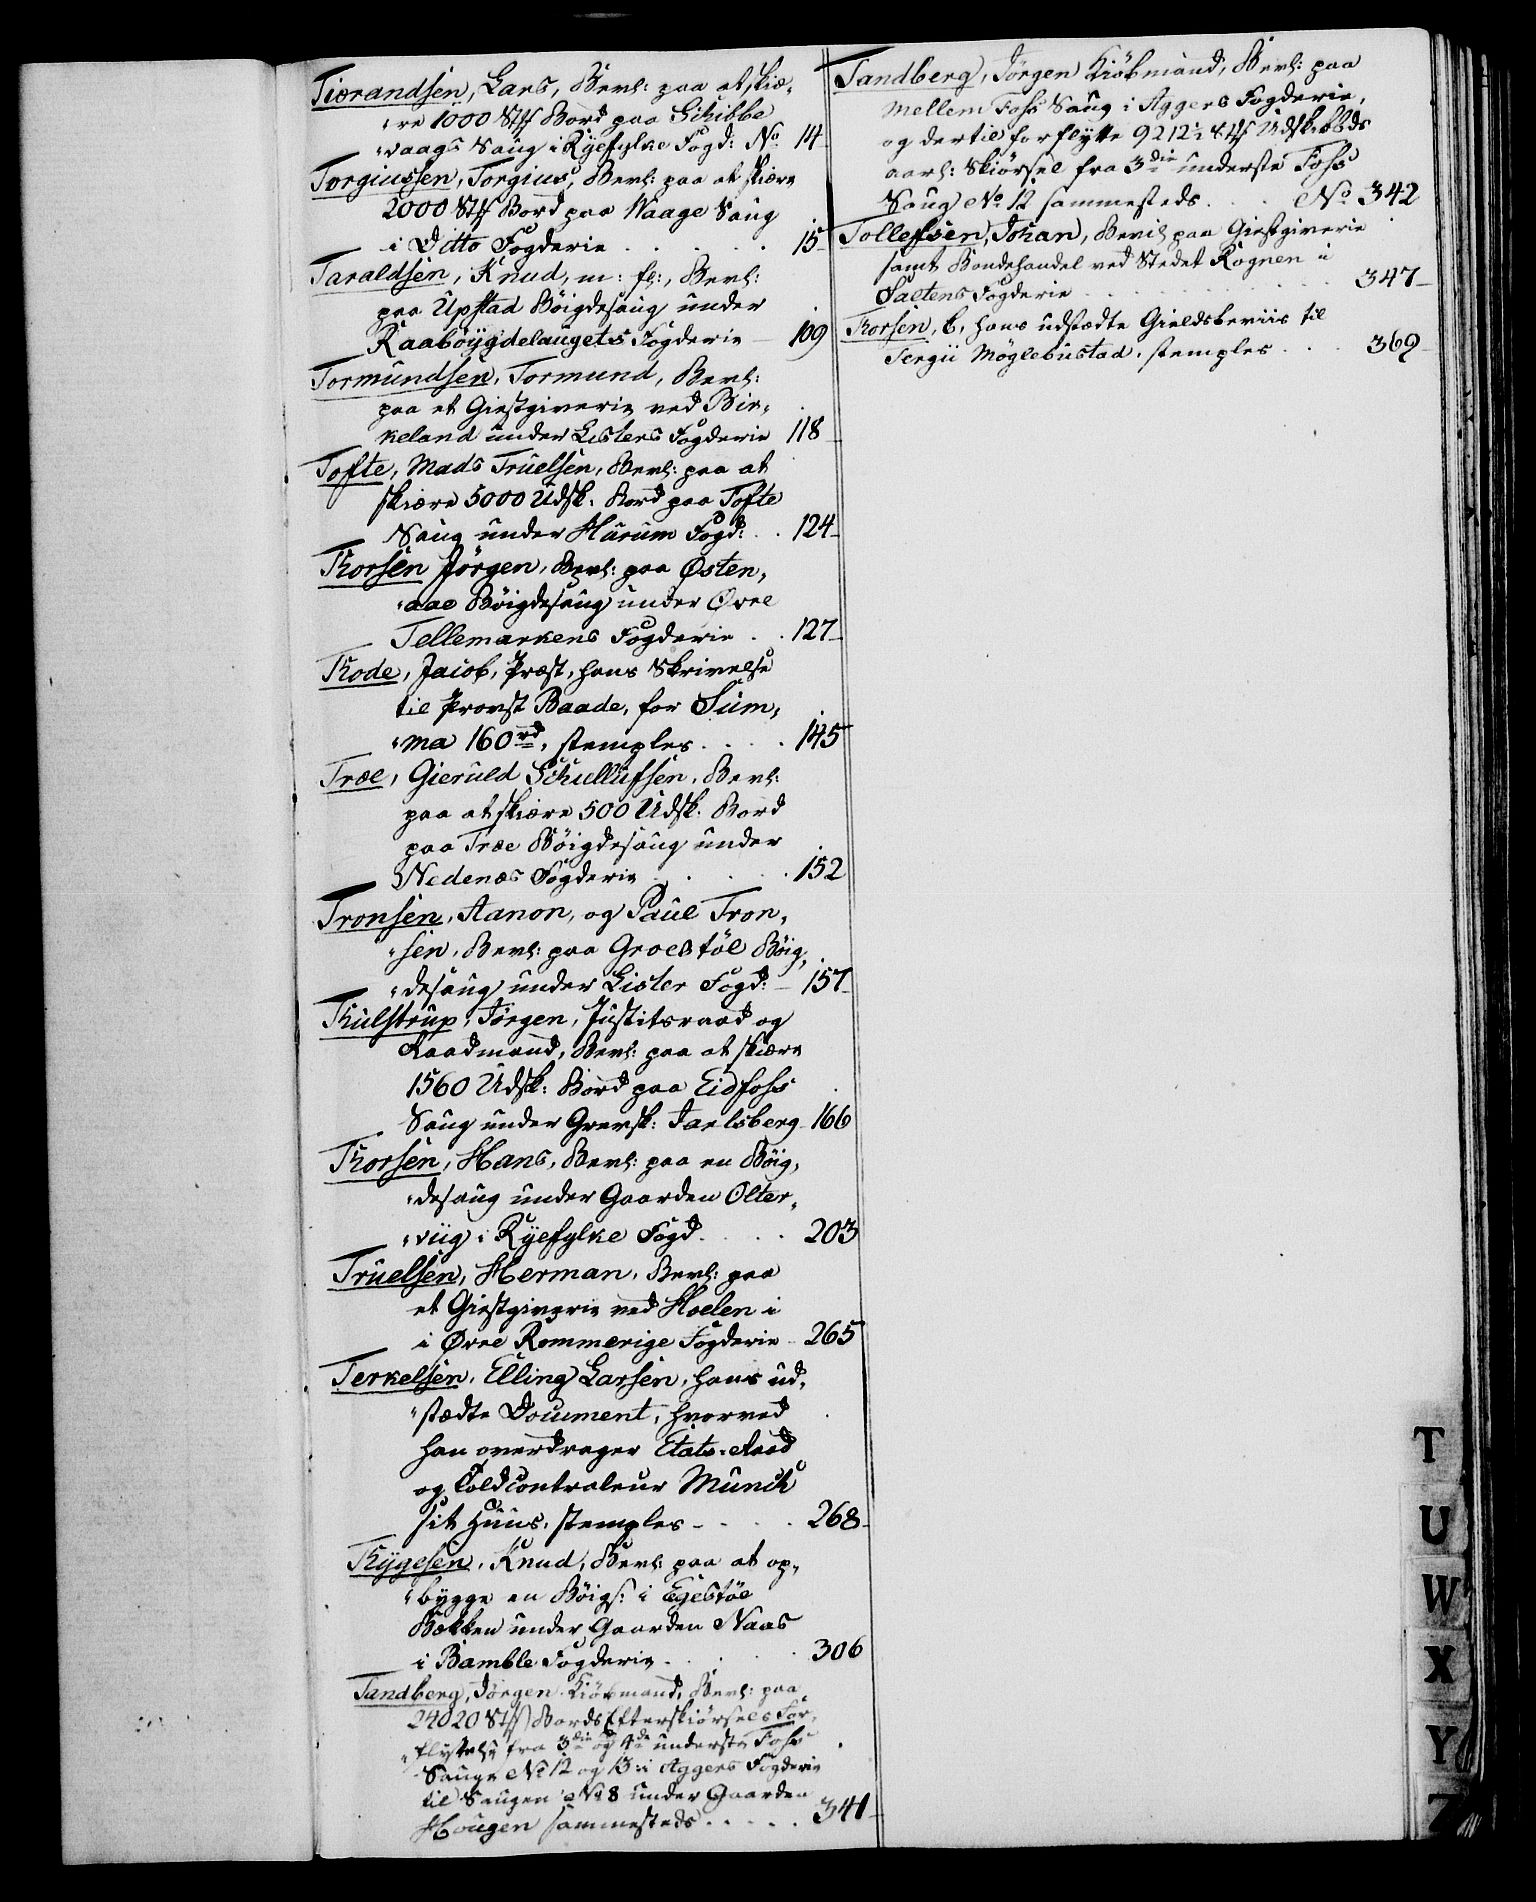 Tiærandsen, Lars, Bevl: paa at skiæ„
„re 1000 Stk Bord paa Schibbe
„vaags Saug i Ryefylke Fogd: No 14
Torgiussen, Torgius, Bevl: paa at skiære
2000 Stk Bord paa Waage Saug
i Ditto Fogderie . . . . . 15
Taraldsen, Knud, m: fl:, Bevl:
paa Upstad Böigdesaug under
Raaböygdelaugets Fogderie 109
Tormundsen, Tormund, Bevl:
paa et Giestgiverie ved Bir„
keland under Listers Fogderie 118
Tofte, Mads Truelsen, Bevl: paa at
skiære 5000 Udsk: Bord paa Tofte
Saug under Hurum Fogd: . . 124
Thorsen Jörgen, Bevl: paa Østen„
„aae Böigdesaug under Øvre
Tellemarkens Fogderie . . 127
Thode, Jacob, Præst, hans Skrivelse
til Provst Baade, for Sum„
„ma 160 rd, stemples . . . . 145
Træe, Gieruld Schullufsen, Bevl:
paa at skiære 500 Udsk: Bord
paa Træe Böigdesaug under
Nedenæs Fogderie . . . . 152
Tronsen, Aanon, og Paul Tron„
„sen, Bevl: paa Groestöl Böig„
„desaug under Lister Fogd: 157
Thulstrup, Jörgen, Justitsraad og
Raadmand, Bevl: paa at skiære
1560 Udsk: Bord paa Eidfoss
Saug under Grevsk: Jarlsberg 166
Thorsen, Hans, Bevl: paa en Böig„
„desaug under Gaarden Olter„
„viig i Ryefylke Fogd . . . . 203
Truelsen, Herman, Bevl: paa
et Giestgiverie ved Hoelen i
i Øvre Rommerige Fogderie 265
Terkelsen, Elling Larsen, hans ud„
„stædte Document, hvorved
han overdrager Etats-Raad
og Toldcontraleur Munch
sit Huus, stemples . . . . 268
Thygesen, Knud, Bevl: paa at op„
„bygge en Böigs: i Egestöe
Bækken under Gaarden Naas
i Bamble Fogderie . . . . . 306
Tandberg, Jörgen Kiöbmand, Bevl: paa
24020 Stk Bords Efterskiörsels For„
„flyttelse fra 3die og 4de underste Foss
Sauge No 12 og 13 i Aggers Fogderie
til Saugen No 8 under Gaarden
Hougen sammesteds . . . . . 341
Tandberg, Jörgen Kiöbmand, Bevl: paa
Mellem Foss Saug i Aggers Fogderie,
og dertil forflytte 9212½ Stk Udsk: Bds
aarl: Skiörsel fra 3die underste Foss
Saug No 12 sammesteds . . . No 342
Tollefsen, Johan, Bevil paa Giestgiverie
samt Bondehandel ved Stedet Rognen i
Saltens Fogderie . . . . . . . . 347
Thorsen, C, hans udstædte Gieldsbeviis til
Tergii Möglebustad, stemples . . . 369
T
U
W
X
Y
Z